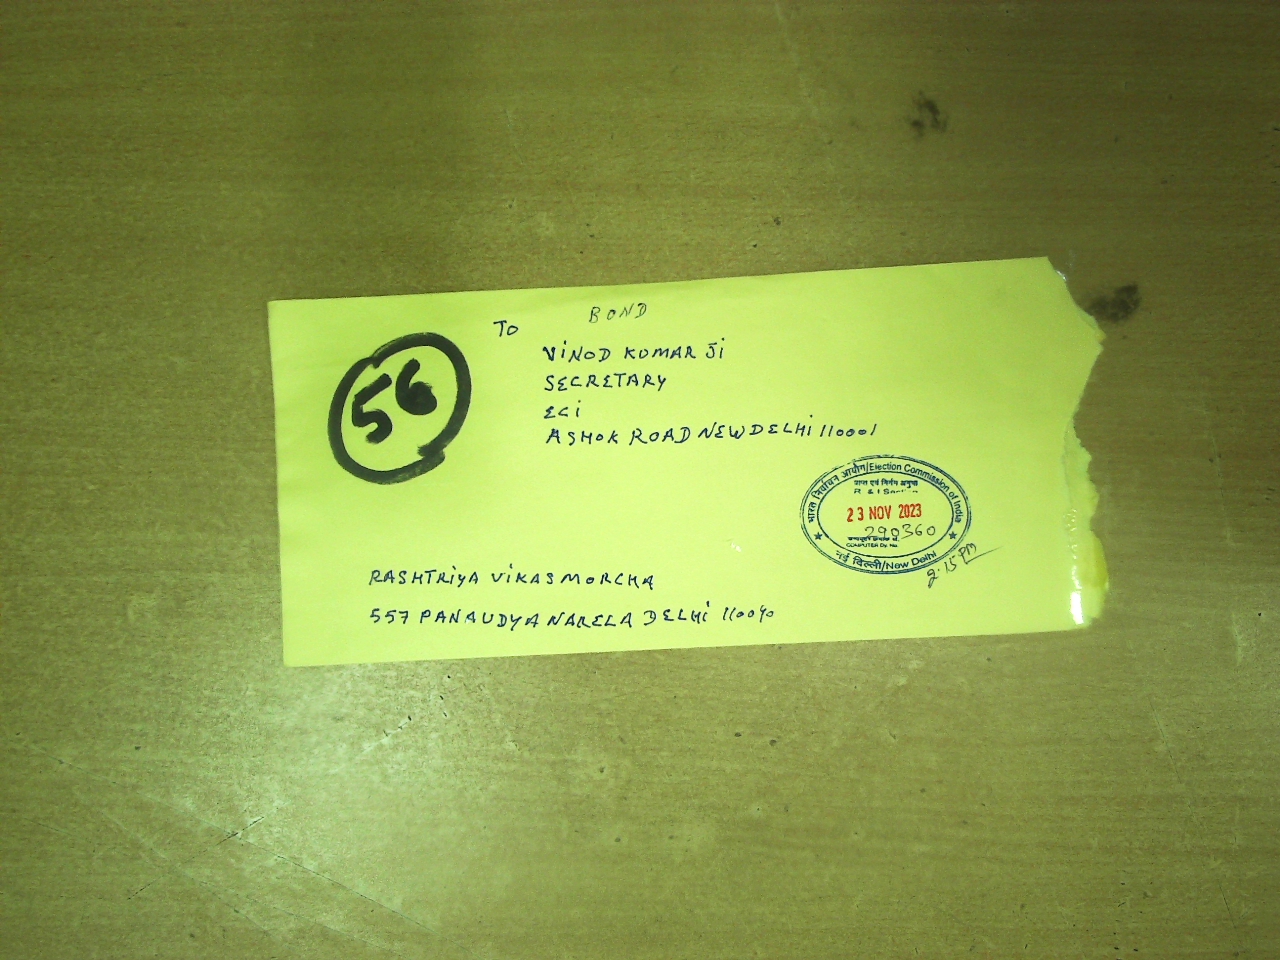 BOND
To
ViNOD KUMAR Ji
SECRETARY
ECi
ASHOK ROAD NEW DELHi 110001
56
भारत निर्वाचन आयोग/Election Commission of India
प्राप्त एवं निर्गम अनुभाग
R & I Section
23 NOV 2023
290360
COMPUTER Dy. No.
नई दिल्ली/New Delhi
2.15 PM
RASHTRiYA ViKAS MORCHA
557 PANA UDYA NARELA DELHi 110040